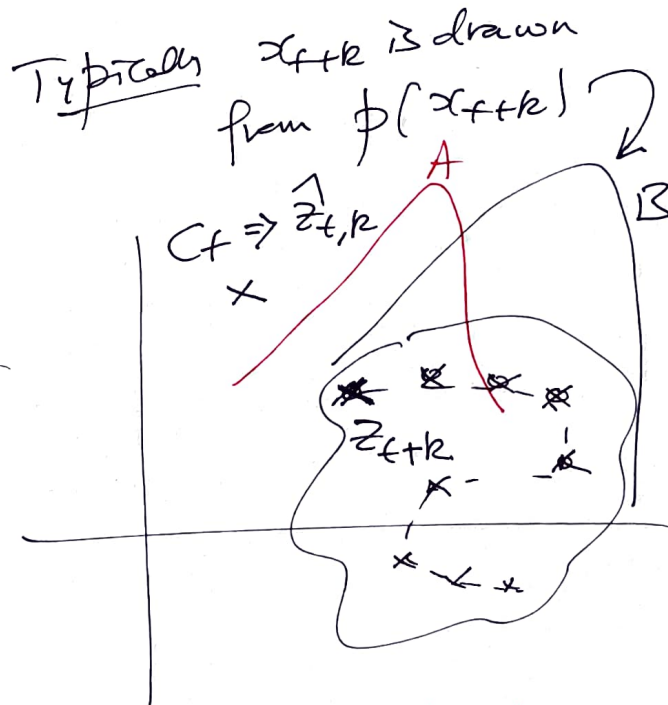 Typically x_{t+k} is drawn
from p(x_{t+k})
A
B
C_t ⇒ \hat{z}_{t,k}
z_{t+k}